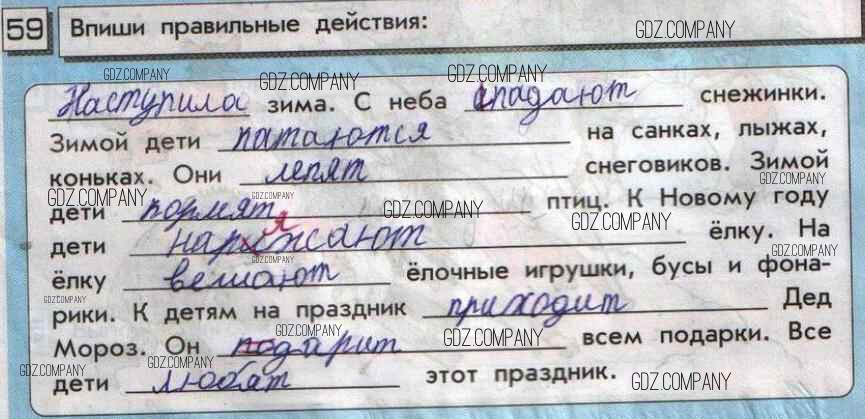 59 Впиши правильные действия: GDZ.COMPANY
GDZ.COMPANY GDZ.COMPANY GDZ.COMPANY
Наступила зима. С неба спадают снежинки.
Зимой дети катаются на санках, лыжах,
коньках. Они лепят снеговиков. Зимой
GDZ.COMPANY GDZ.COMPANY GDZ.COMPANY
дети кормят птиц. К Новому году
GDZ.COMPANY GDZ.COMPANY
дети наряжают ёлку. На
GDZ.COMPANY GDZ.COMPANY
ёлку вешают ёлочные игрушки, бусы и фона-
GDZ.COMPANY
рики. К детям на праздник приходит Дед
GDZ.COMPANY GDZ.COMPANY
Мороз. Он подарит всем подарки. Все
GDZ.COMPANY GDZ.COMPANY
дети любят этот праздник. GDZ.COMPANY